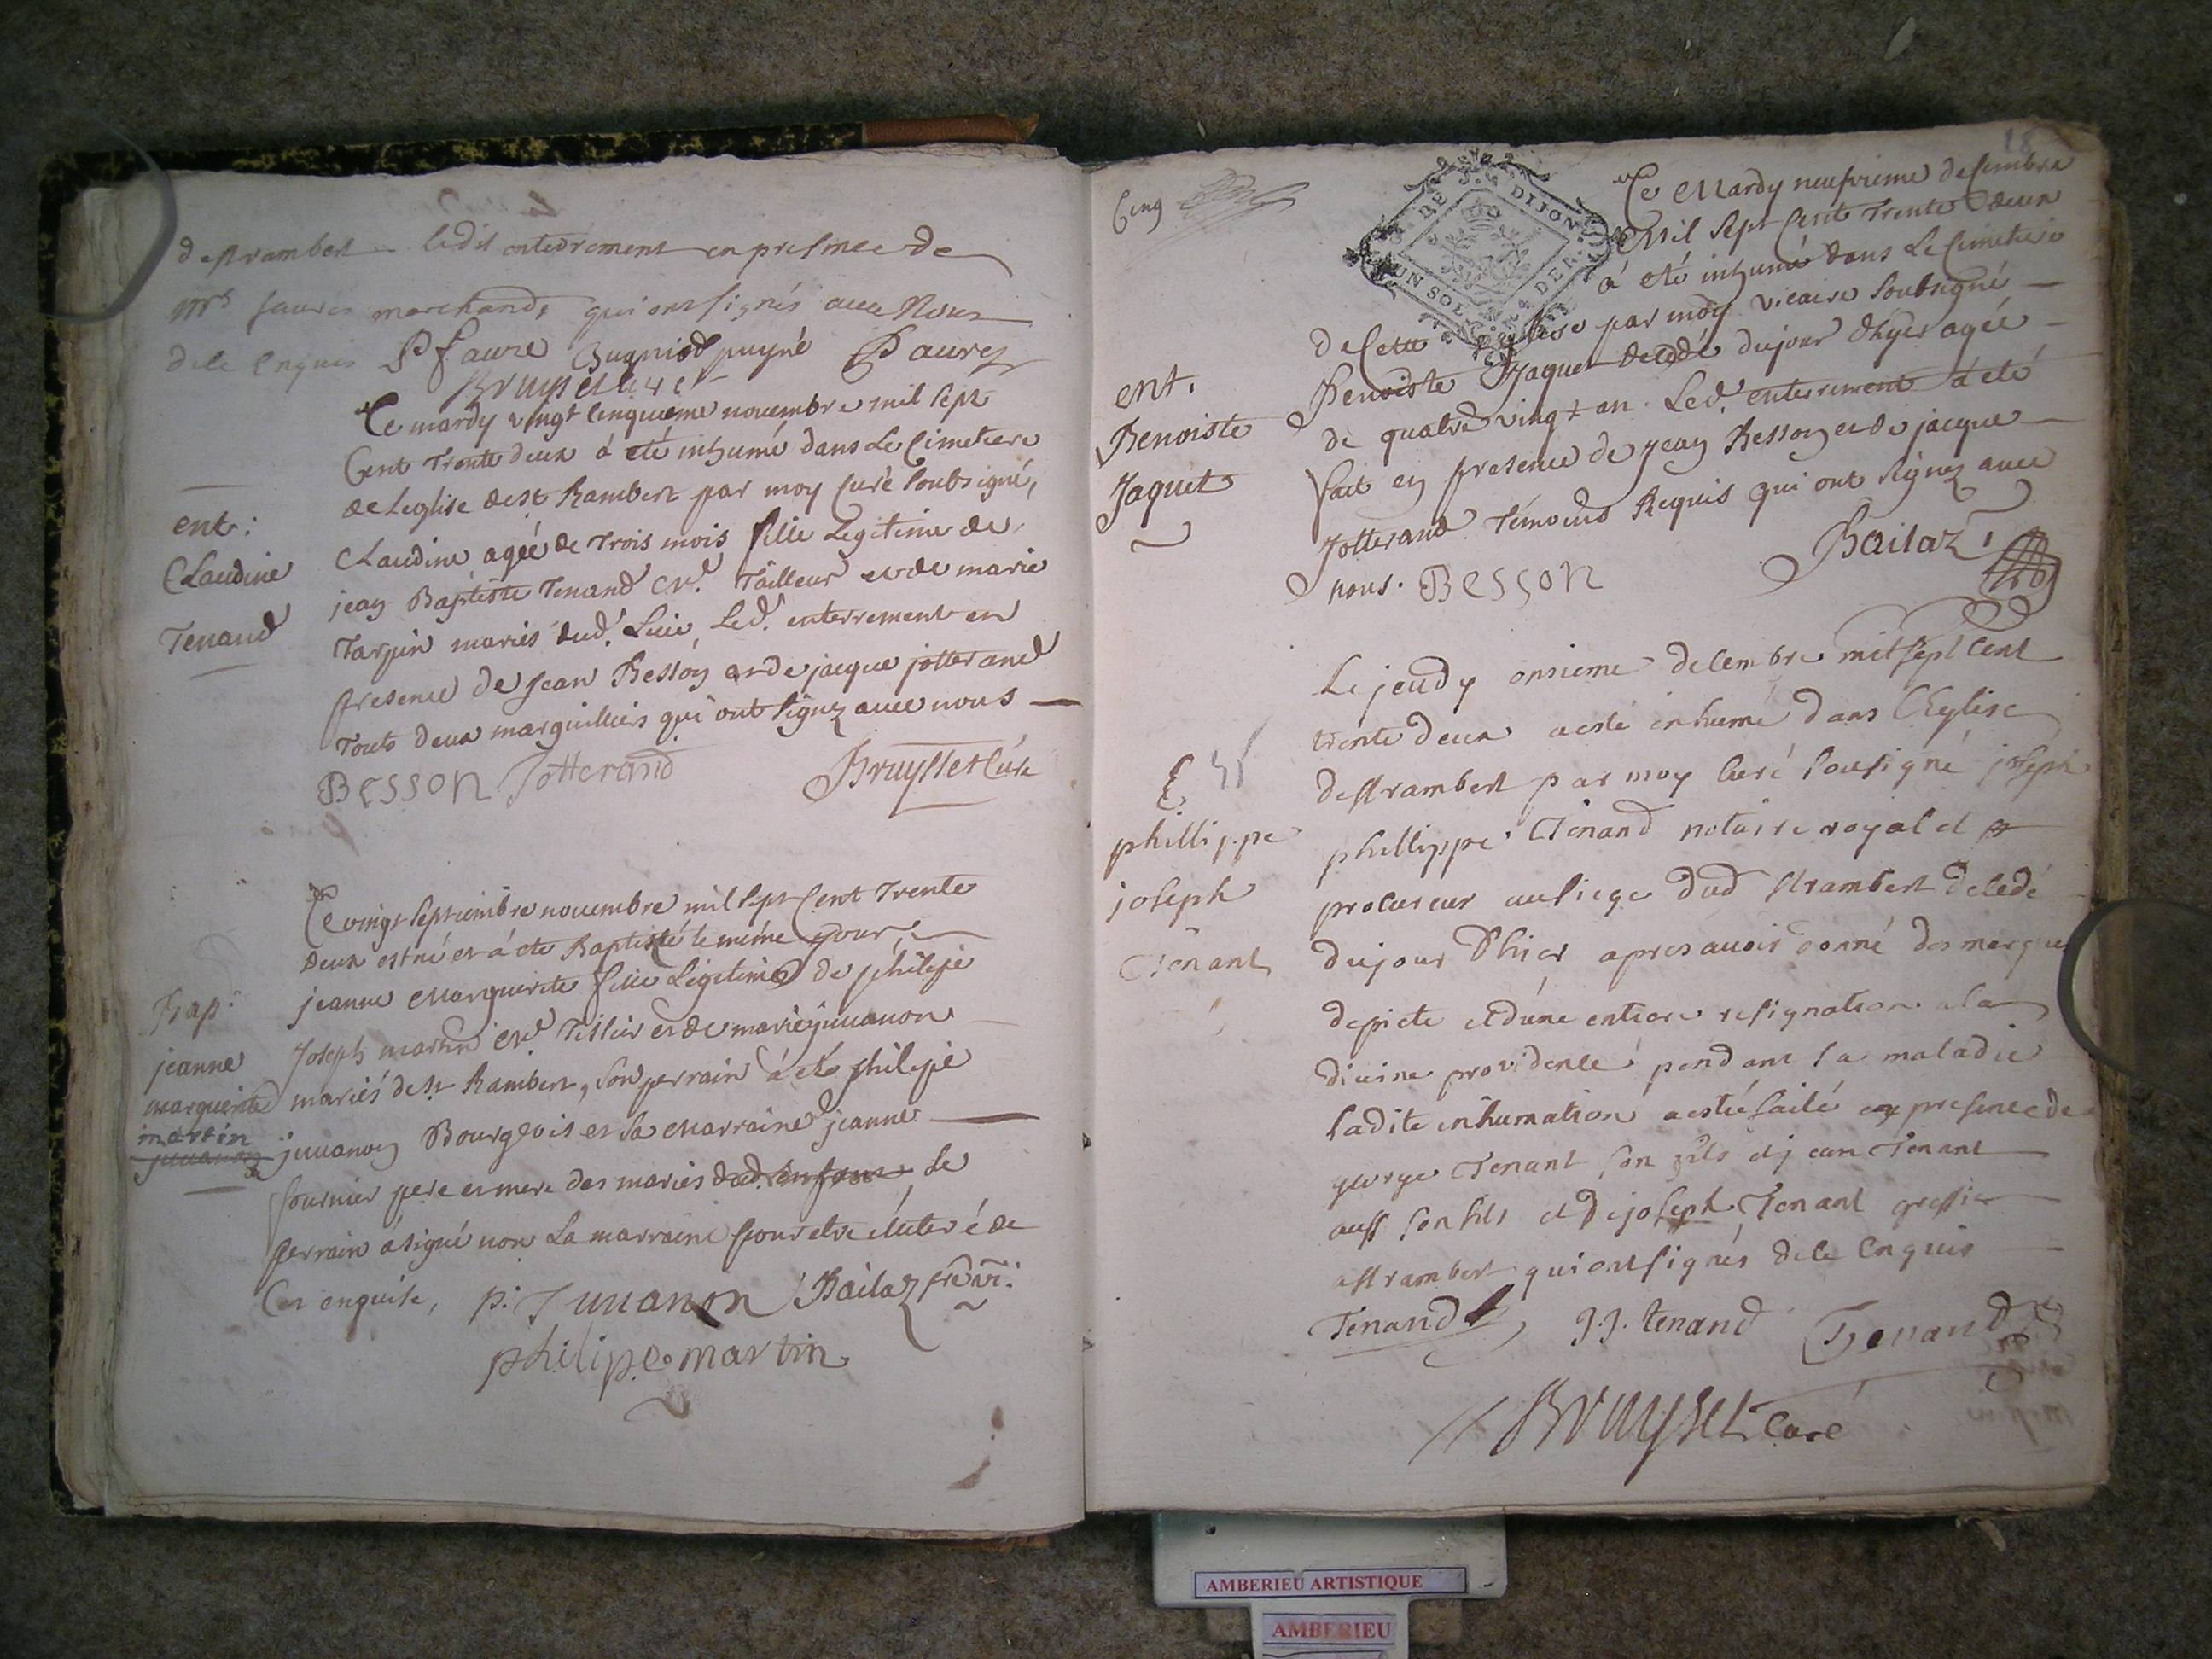 de st rambert ledit enterrement en presence de
mrs faures marchands qui ont signés avec Nous
de ce enquis P faure Bugniod puyné P faure
Bruysset curé
Ce mardy vingt cinquieme novembre mil sept
Cent Trente deux á eté inhumé dans Le Cimetiere
de Leglise de st Rambert par moy curé soubsigné,
ent:
Claudine
Tenand
Claudine agée de Trois mois fille Legitime de
jean Baptiste Tenand Mre Tailleur et de marie
Tarpin mariés dud. Lieu, Led. enterrement en
presence de Jean Besson et de jacque jotterand
Touts deux marguilliers qui ont signez avec nous
BESSON Jotterand Bruysset Curé
Ce vingt septiembre novembre mil sept Cent Trente
deux est né et á eté Baptisté le méme jour
Bap.
jeanne
marguerite
martin
juvanon
jeanne Marguerite fille Legitime de philipe
Joseph martin Mre Tissier et de marie juvanon
mariés de st Rambert, Son perrain á eté philipe
juvanon Bourgeois et sa Marraine jeanne
fournier pere et mere des mariés dud. enfant Le
perrain á signé non La marraine pour etre illiteré de
Ce enquise, p: Juvanon Bailaz pre vic:
philipe martin
18
Cinq
DE DIJON
UN SOL 4 DER.
Ce Mardy neufvieme decembre
Mil sept Cent Trente Deux
á eté inhumé dans Le Cimetiere
de Cette Eglise par moy vicaire soubsigné
ent.
Benoiste
Jaquet
Benoiste Jaquet décédé du jour d'hyer agée
de quatre vingt an. Led. enterrement á eté
fait en presence de jean Besson et de jacque
Jotterand Témoins Requis qui ont signez avec
nous. BESSON Bailaz
Le jeudy onsieme decembre mil sept cent
trente deux a esté inhumé dans l'Eglise
de st rambert par moy curé sousigné joseph
E.
phillippe
joseph
Tenant
phillippe Tenand notaire royal et
procureur au siege dud st rambert decedé
du jour d'hier apres avoir donné des marques
de pieté et d'une entiere resignation a la
divine providence pendant sa maladie
ladite inhumation a esté faite en presence de
george Tenant son fils et jean Tenant
aussi son fils et de joseph Tenant greffier
a st rambert qui ont signés de ce enquis
Tenand J.J. tenand Tenand
Bruysset Curé
AMBERIEU ARTISTIQUE
AMBERIEU